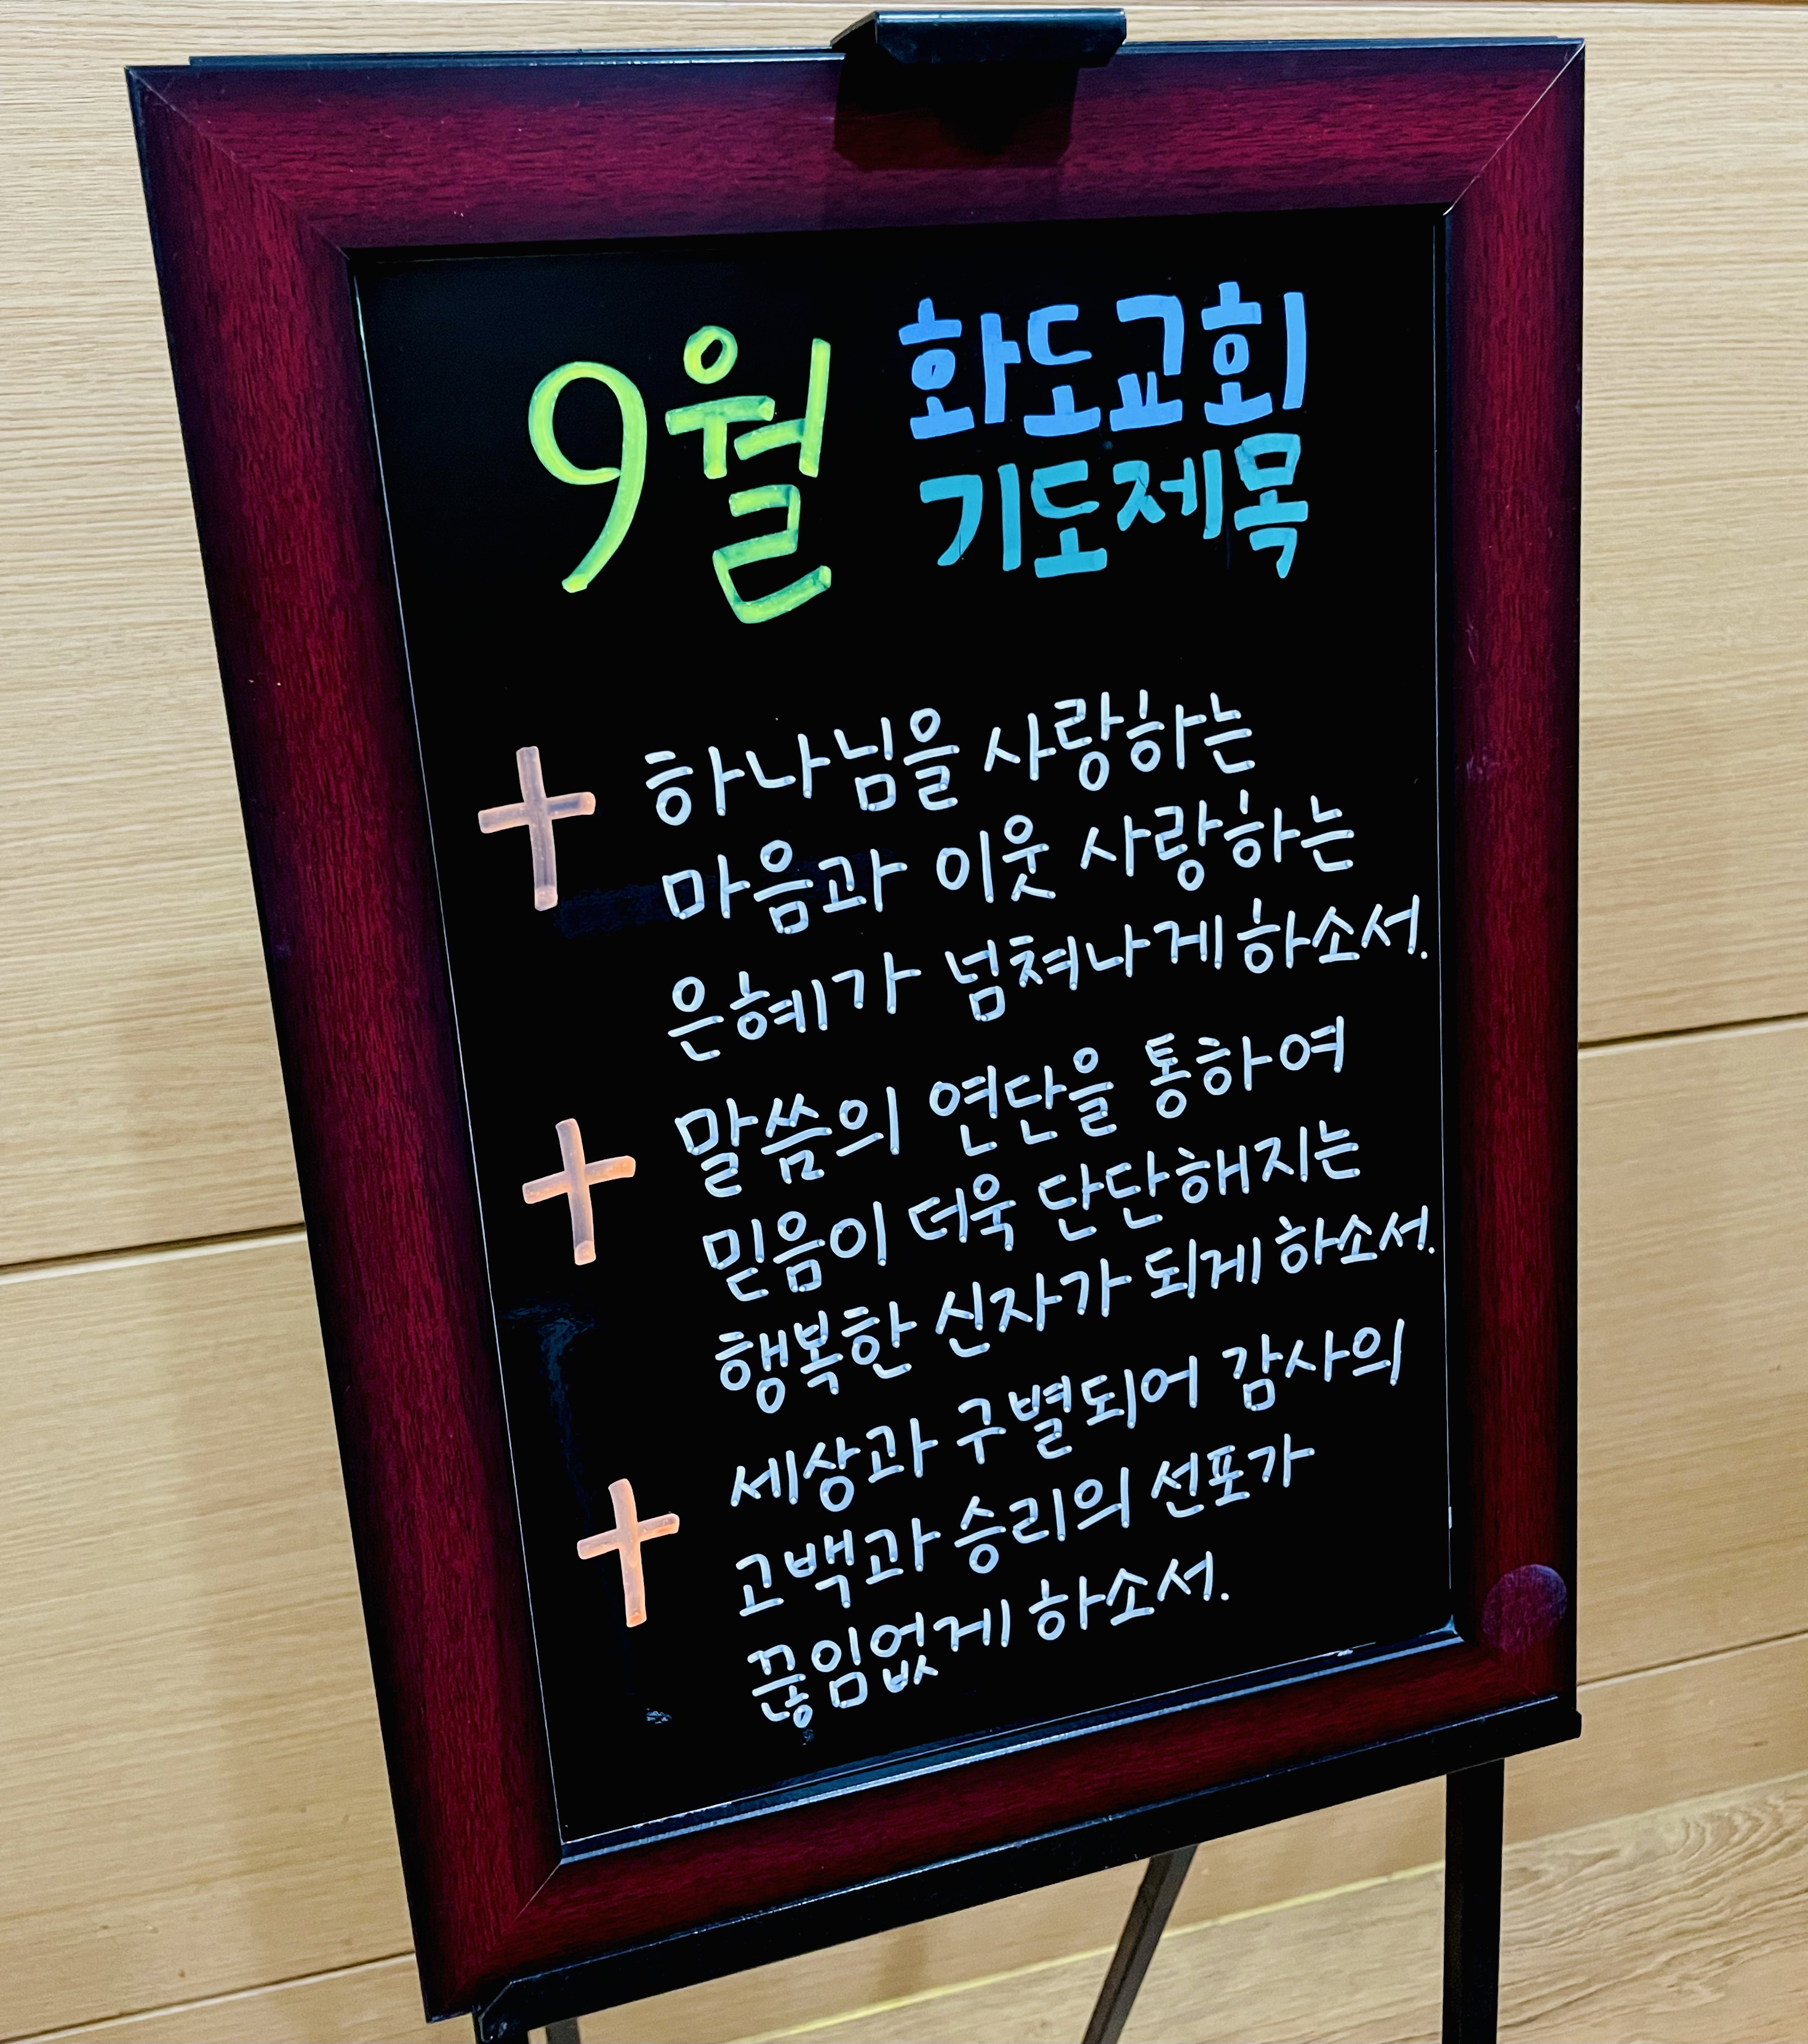 9월 화도교회
기도제목
하나님을 사랑하는
마음과 이웃 사랑하는
은혜가 넘쳐나게 하소서.
말씀의 연단을 통하여
믿음이 더욱 단단해지는
행복한 신자가 되게 하소서.
세상과 구별되어 감사의
고백과 승리의 선포가
끊임없게 하소서.